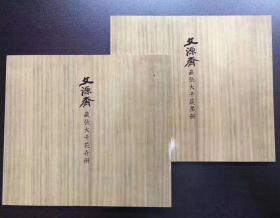 文源齋
藏張大千花卉冊
文源齋
藏張大千蔬果冊